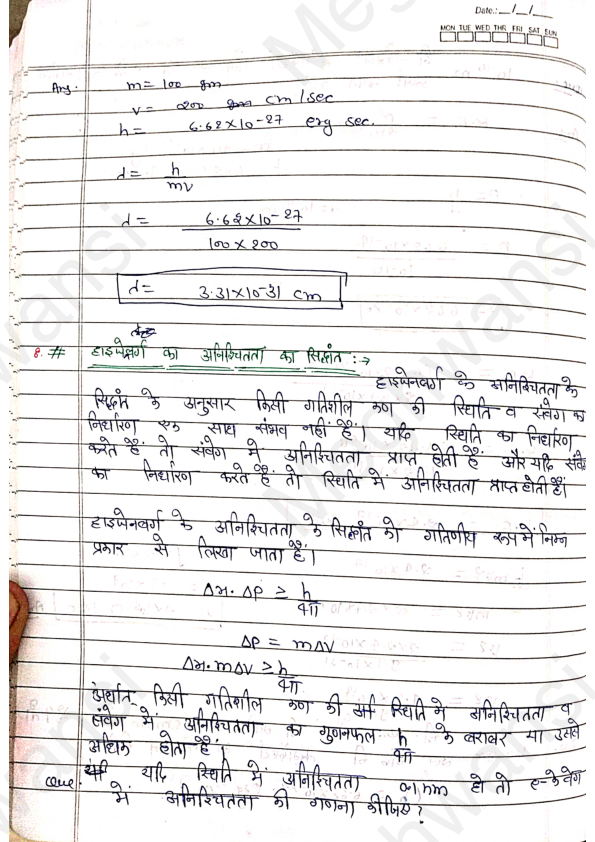 Date.:__/__/__
MON TUE WED THR FRI SAT SUN
Ans. m = 100 gm
v = 200 cm/sec
h = 6.62×10-27 erg sec.
d = h/mv
d = 6.62×10-27 / 100×200
d = 3.31×10-31 cm
8. # हाइजेनबर्ग का अनिश्चितता का सिद्धांत :→
हाइजेनबर्ग के अनिश्चितता के
सिद्धांत के अनुसार किसी गतिशील कण की स्थिति व संवेग का
निर्धारण एक साथ संभव नहीं हैं। यदि स्थिति का निर्धारण
करते हैं तो संवेग में अनिश्चितता प्राप्त होती हैं और यदि संवेग
का निर्धारण करते हैं तो स्थिति में अनिश्चितता प्राप्त होती हैं।
हाइजेनबर्ग के अनिश्चितता के सिद्धांत को गतिणीय रूप में निम्न
प्रकार से लिखा जाता हैं।
Δx. ΔP ≥ h/4π
ΔP = mΔV
Δx. mΔV ≥ h/4π
अर्थात किसी गतिशील कण की स्थिति में अनिश्चितता व
संवेग में अनिश्चितता का गुणनफल h/4π के बराबर या उससे
अधिक होता हैं।
Que. यदि स्थिति में अनिश्चितता 0.1 nm हो तो e- के वेग
में अनिश्चितता की गणना कीजिये?
Meghwansi